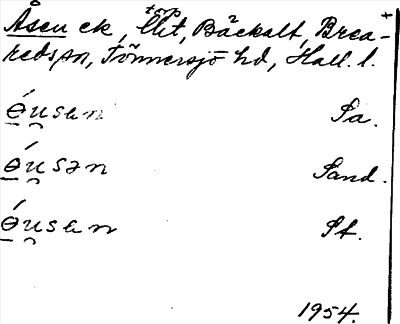 Åsen ck, torp Ut, Bäckalt, Brea-
redssn, Tönnersjö hd, Hall. l.
ə́u̯san Sa.
ə́u̯sən Sand.
ə́u̯san St.
1954.